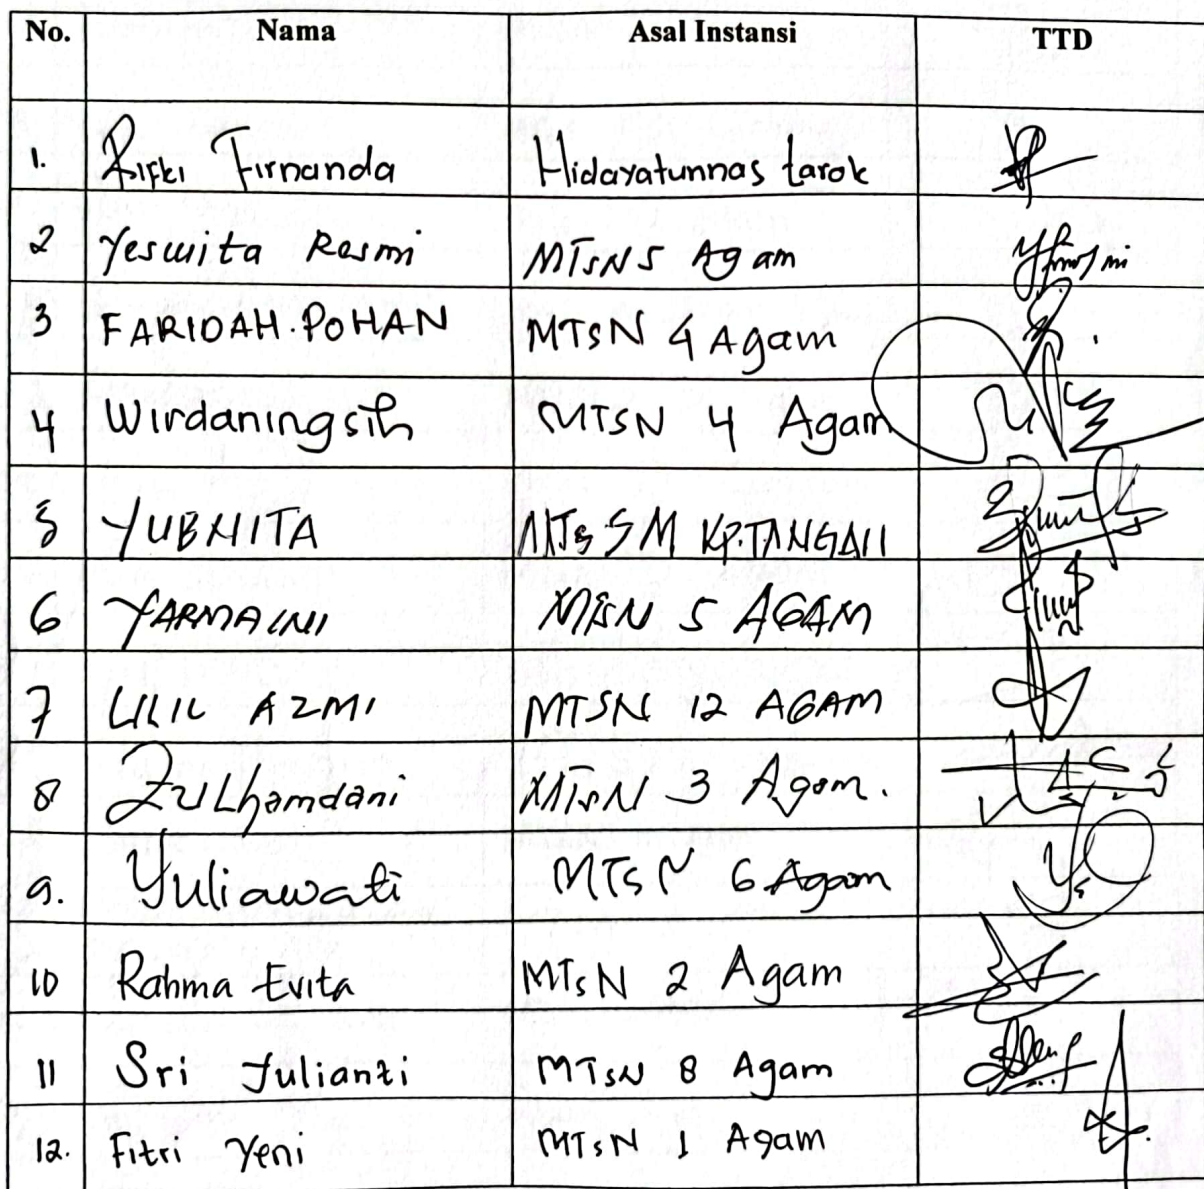 No. Nama Asal Instansi TTD
1. Rifki Firnanda Hidayatunnas tarok
2 Yeswita Resmi MTsN 5 Agam
3 FARIDAH.POHAN MTSN 4 Agam
4 Wirdaningsih MTSN 4 Agam
5 YUBNITA MTs SM KP.TANGAH
6 YARMAINI MTSN 5 AGAM
7 LILIL AZMI MTSN 12 AGAM
8 Zulhamdani MTsN 3 Agam.
9. Yuliawati MTSN 6 Agam
10 Rahma Evita MTsN 2 Agam
11 Sri Julianti MTSN 8 Agam
12. Fitri Yeni MTSN 1 Agam